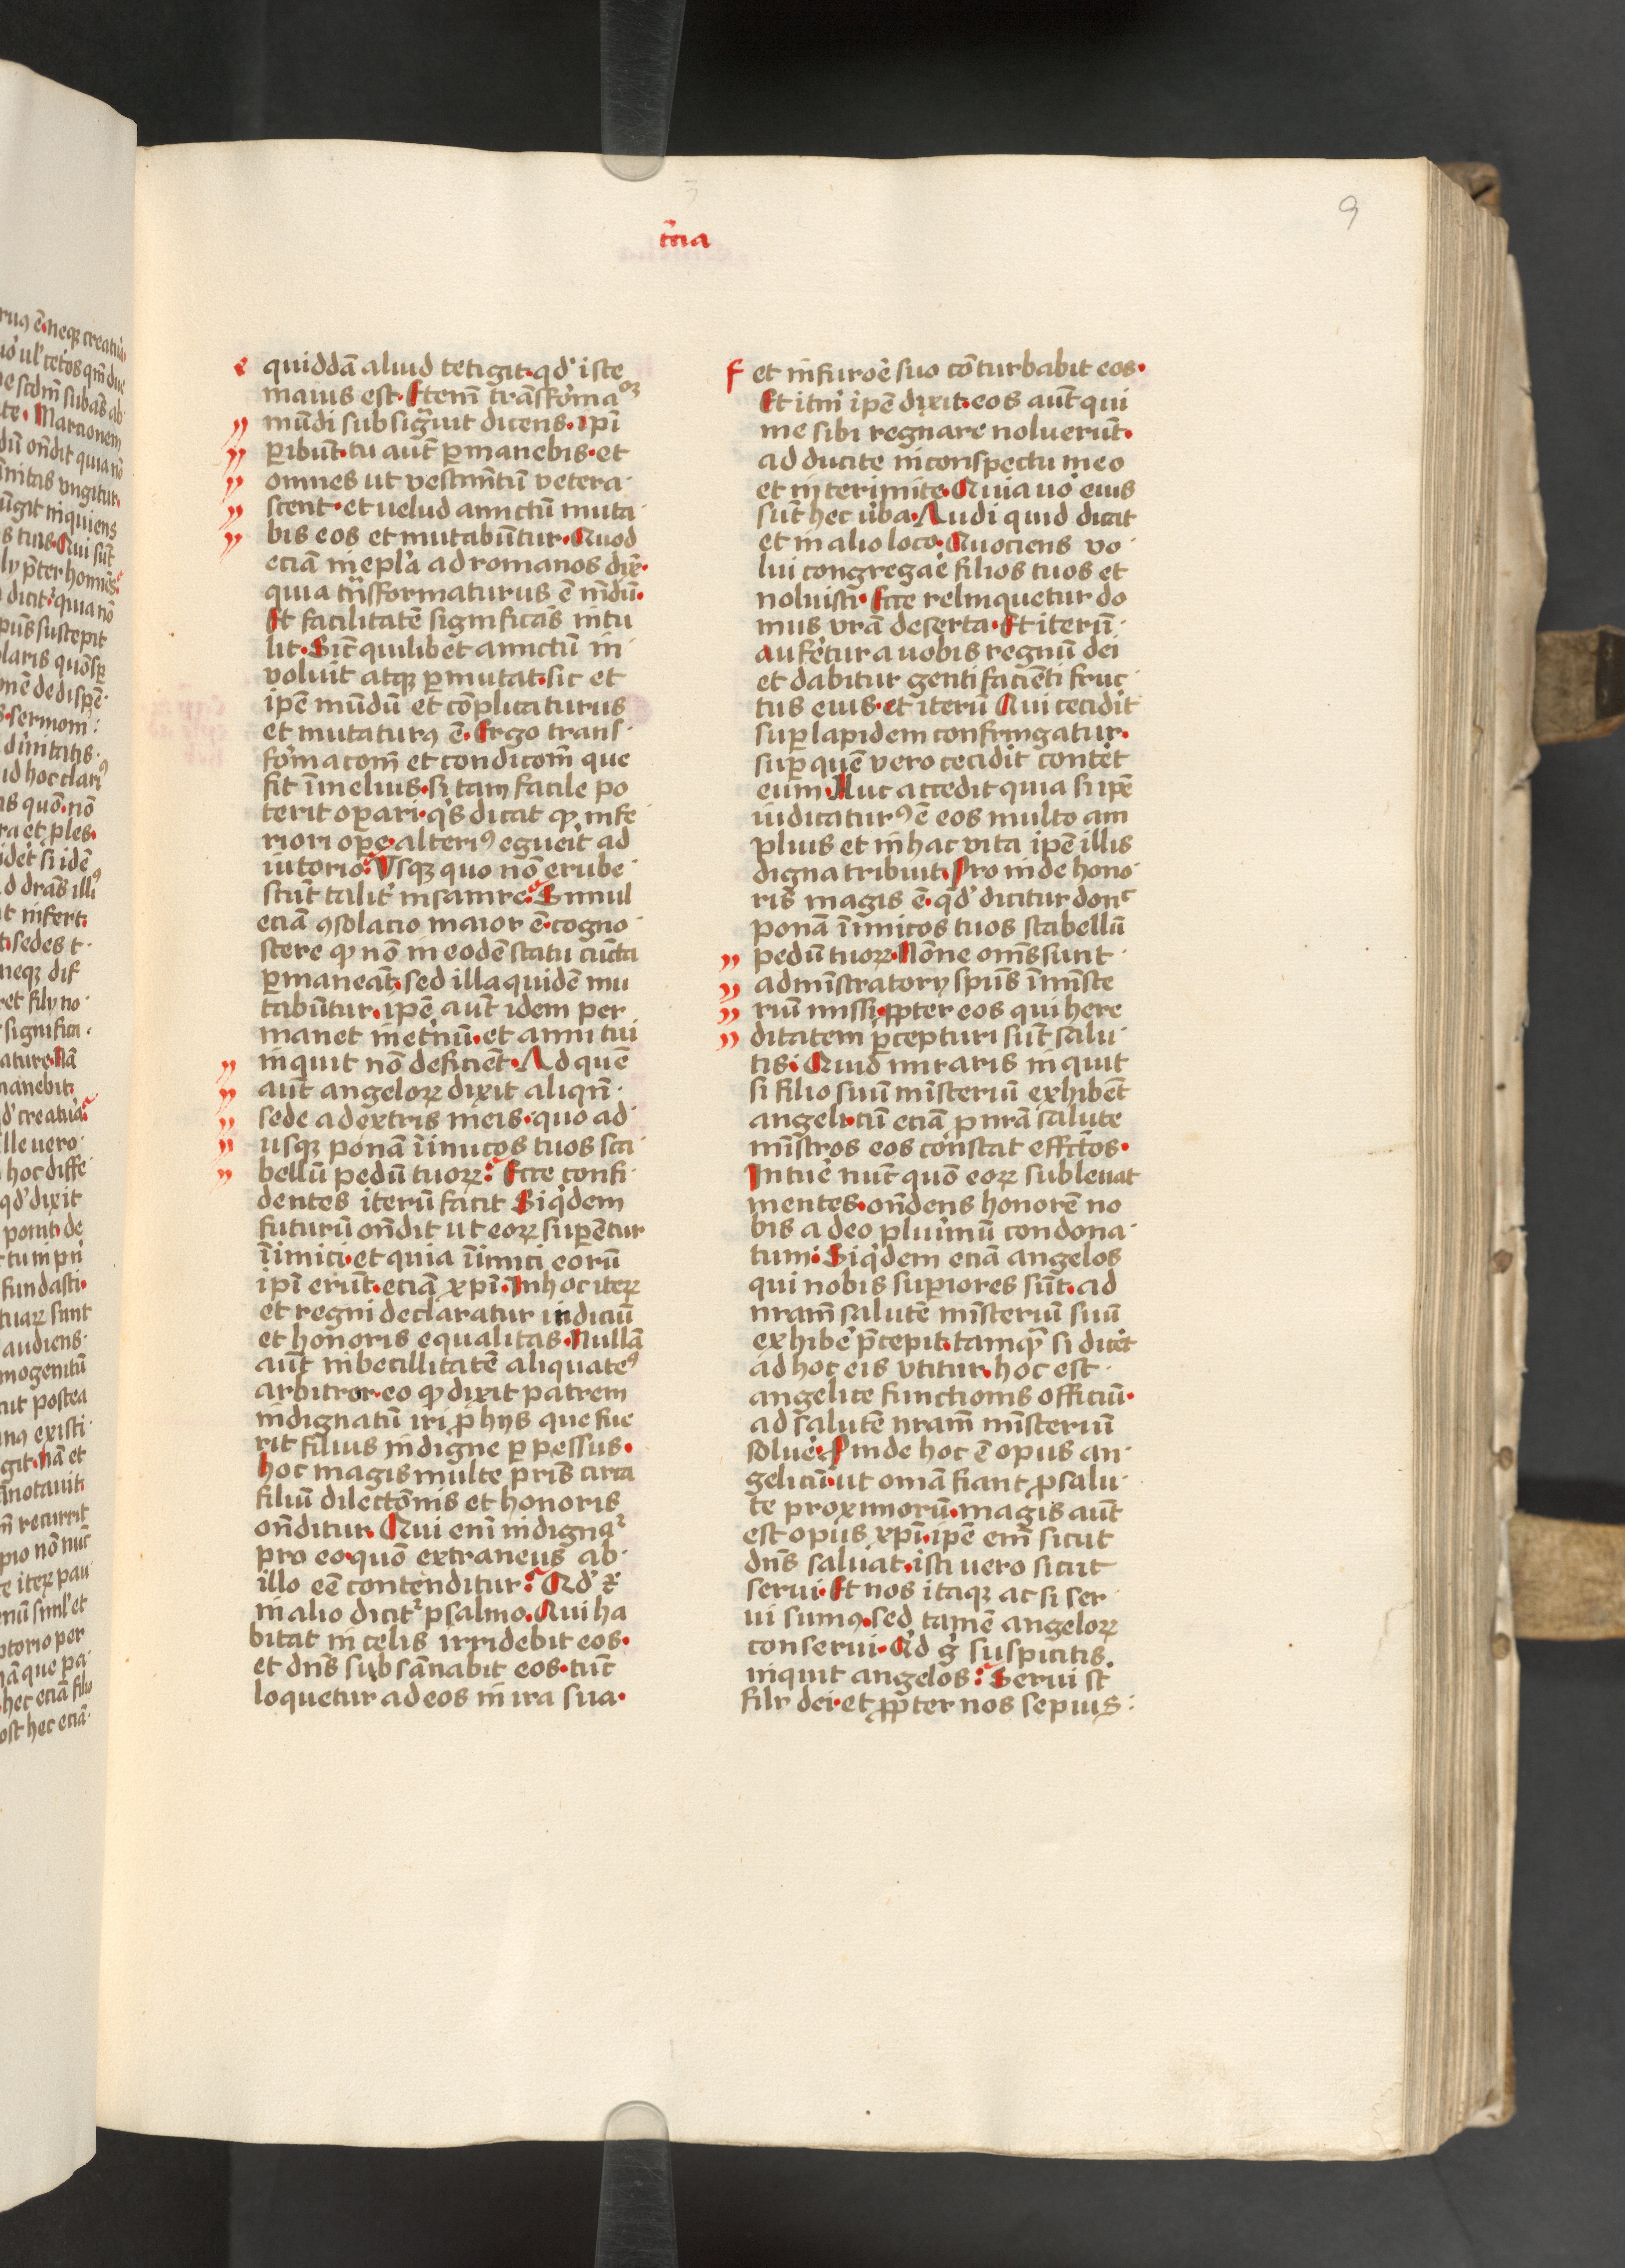 3
9
t̄cia
e quiddā aliud tetigit·qd' iste
maius est·Etenī trāsforma
mūdi subsig̃uit dicens·ipī
ꝑibūt·tu aut̄ ꝑmanebis·et
omnes ut vestim̄tū vetera·
scent·et uelud amictū muta·
bis eos et mutabūtur·Quod
eciā in epl'a ad romanos dix̄·
quia trāsformaturus ē mūdū·
Et facilitatē significās intu
lit·Sic̄ quilibet amictū in·
voluit atqꝫ ꝑmutat·sic et
ipē mūdū et cōplicaturus
et mutaturꝰ ē·Ergo trans·
formacom̄ et condicom̄ que
fit ī melius·si tam facile po
terit oꝑari·q's dicat ꝙ infe
riori oꝑe·alteriꝰ egueit ad
iutorio: Vsqꝫ quo nō erube·
scūt talit' insanire: Simul
eciā ꝯsolacio maior ē·cogno·
scere ꝙ nō in eodē statu cūcta
ꝑmaneāt·sed illa quidē mu
tabūtur·ipē aut̄ idem per
manet in et'nū·et anni tui
inquit nō deficiēt·Ad quē
aut̄ angeloꝝ dixit aliqn̄·
sede a dextris meis·quo ad·
usqꝫ ponā īimicos tuos sca·
bellū pedū tuoꝝ: Ecce confi·
dentes iterū facit Siq'dem
futurū on̄dit ut eoꝝ suꝑētur
īimici·et quia īimici eorū
ipī erūt·eciā xpī·In hoc iteꝝ
et regni declaratur indiciū
et honoris equalitas·Nullā
aut̄ inbecillitatē aliquateꝰ
arbitror·eo ꝙ dixit patrem
indignatū iri ꝓ hijs que fue
rit filius indigne ꝑpessus·
hoc magis multe pris̄ circa
filiū dilectōnis et honoris
on̄ditur·Qui eni indignaᷣ
pro eo·quō extraneus ab·
illo eē contenditur: Qd' ⁊
in alio dicitᷣ psalmo·Qui ha
bitat in celis irridebit eos·
et dn̄s subsānabit eos·tūc
loquetur ad eos in ira sua·
f et in furoē suo cōturbabit eos·
Et itm̄ ipē dixit·eos aut̄ qui
me sibi regnare noluerūt·
adducite in conspectu meo
et interimite·Quia uo' eius
sūt hec ūba·Audi quid dicat
et in alio loco·Quociens vo·
lui congregaē filios tuos et
noluisti·Ecce relinquetur do
mus vrā deserta·Et iterū·
auferetur a uobis regnū dei
et dabitur genti faciēti fruc·
tus eius·et iterū Qui cecidit
suꝑ lapidem confringatur·
suꝑ quē vero cecidit contet
eum·Huc accedit quia si ipē
iudicaturꝰ ē eos multo am
plius et in hac vita ipē illis
digna tribuit·Proinde hono·
ris magis ē·qd' dicitur donc
ponā īimicos tuos scabellū
pedū tuoꝝ·Nōne om̄s sunt·
admīstratorij spūs ī mīste
riū missi·ꝓpter eos qui here·
ditatem ꝑcepturi sūt salu·
tis: Quid miraris inquit
si filio suū mīsteriū exhibēt
angeli·cū eciā ꝓ nrā salute
mīstros eos constat effctōs·
Intuē nūc quō eoꝝ subleuat
mentes·on̄dens honorē no
bis a deo plurimū condona·
tum: Siq'dem eciā angelos
qui nobis suꝑiores sūt·ad
nram̄ salutē mīsteriū suū
exhibē p̄cepit·tamqᷓ si dicēt
ad hoc eis vtitur·hoc est·
angelice functionis officiū·
ad salutē nram̄ mīsteriū
soluē·Pinde hoc ē opus an·
gelicū·ut omā fiant ꝓ salu·
te proximorū·magis aut̄
est opus xpī·ipē em̄ sicut
dn̄s saluat·isti vero sicut
serui·Et nos itaqꝫ ac si ser·
ui sumꝰ·sed tamē angeloꝝ
conserui·Qd g̊ suspicitis·
inquit angelos: Serui st̄
filij dei·et ꝓpter nos sepius: